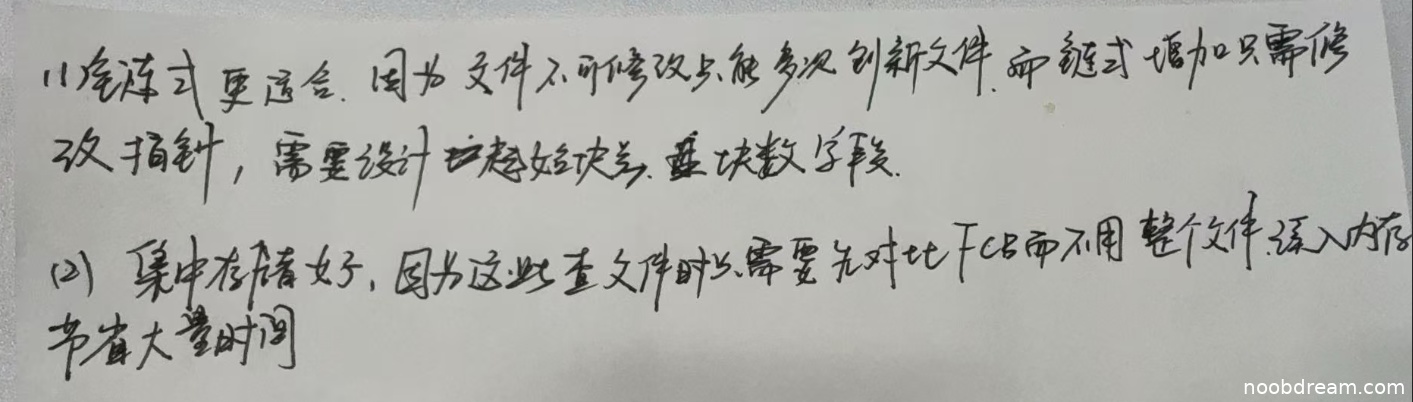 (1) 链式更适合.因为文件不可修改只能多次创新文件.而链式增加只需修
改指针,需要设计起始块号.块数字段.
(2) 集中存储好,因为这些查文件时只需要先对比FCB而不用整个文件读入内存
节省大量时间
noobdream.com